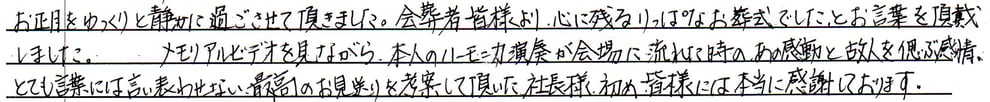 お正月をゆっくりと静かに過ごさせて頂きました。会葬者皆様より、心に残るりっぱなお葬式でしたとお言葉を頂戴
しました。　メモリアルビデオを見ながら、本人のハーモニカ演奏が会場に流れた時の、あの感動と故人を偲ぶ感情。
とても言葉には言い表わせない最高のお見送りを考案して頂いた社長様、初め、皆様には本当に感謝しております。